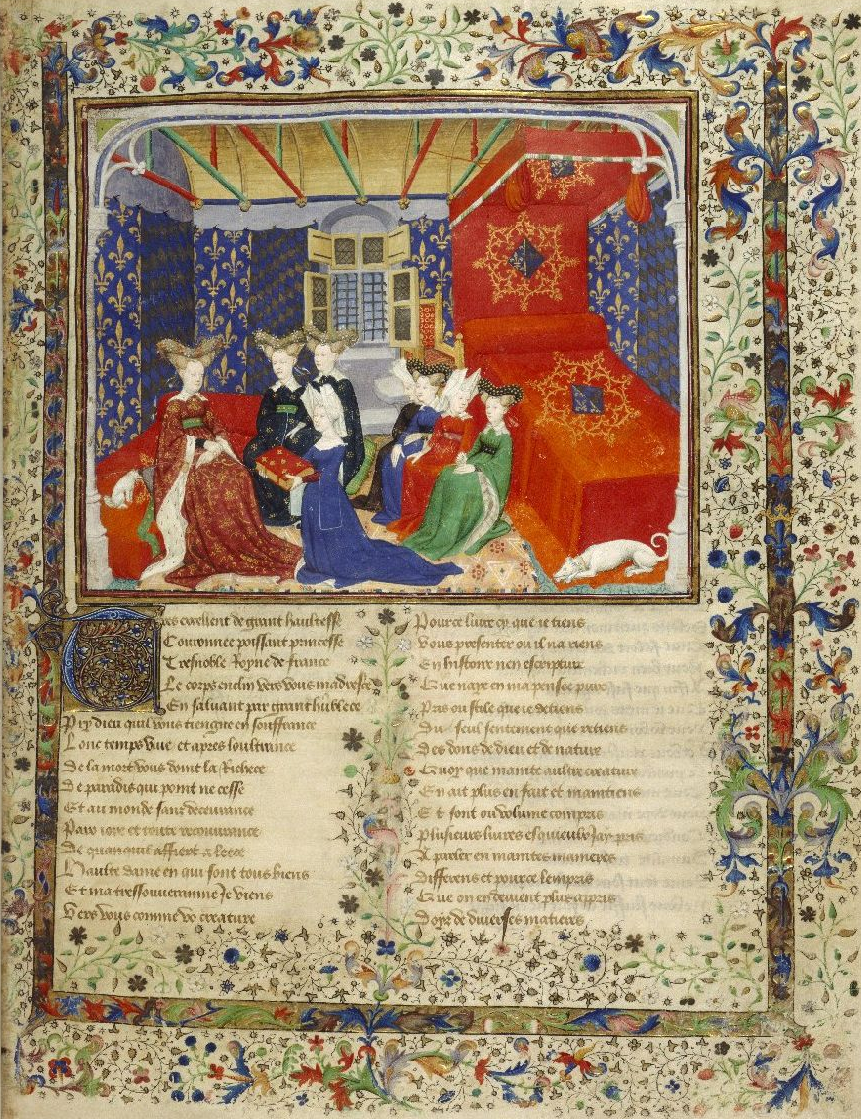 Tres excellent de grant haultesse
Couronnee poissant princesse
Tres noble Royne de france
Le corps enclin vers vous madresce
En saluant par grant humblece
Pry dieu quil vous tiengne en souffrance
Lonc temps vive et apres loultrance
De la mort vous doint la Richece
De paradis qui point ne cesse
Et au monde sans decevrance
Paix ioye et toute recouvrance
De quanquil affiert a leece
Haulte dame en qui sont tous biens
Et ma tressouverainne Je viens
Vers vous comme vo creature
Pour ce livre cy que ie tiens
Vous presenter ou il na riens
En histoire nen escripture
Que naye en ma pensee pure
Pris ou stile que ie detiens
Du seul sentement que retiens
Des dons de dieu et de nature
Quoy que mainte aultre creature
En ait plus en fait et maintiens
Et sont ou volume compris
Plusieurs livres esquieulx Jay pris
A parler en maintes manieres
Differens et pour ce lempris
Que on en devient plus apris
Doyr de diverses matieres